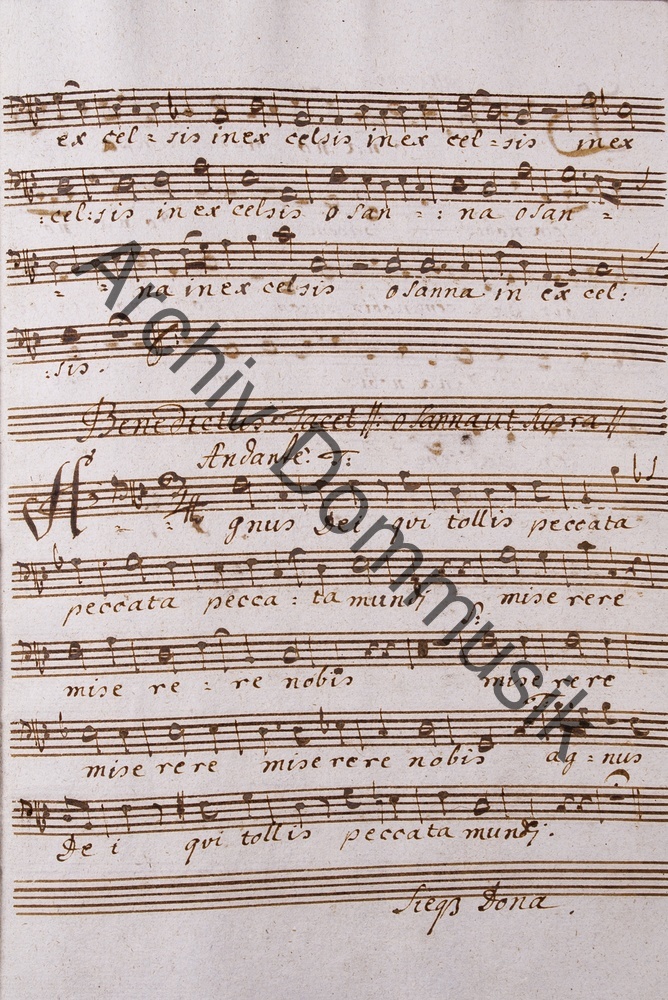 ex cel = sis in ex celsis in ex cel = sis in ex
:cel: sis in ex celsis o san - : - na o san =
= = na in ex celsis osanna in ex cel:
:sis.
Benedictus Tacet //: osanna ut supra //
Andante: T:
Agnus Dei qui tollis peccata
peccata pecca : ta mundi S: mise rere
mise re : re nobis mise rere
T:
mise rere mise rere nobis ag = nus
De i qui tollis peccata mundi.
Sieqz Dona.
Archiv Dommusik